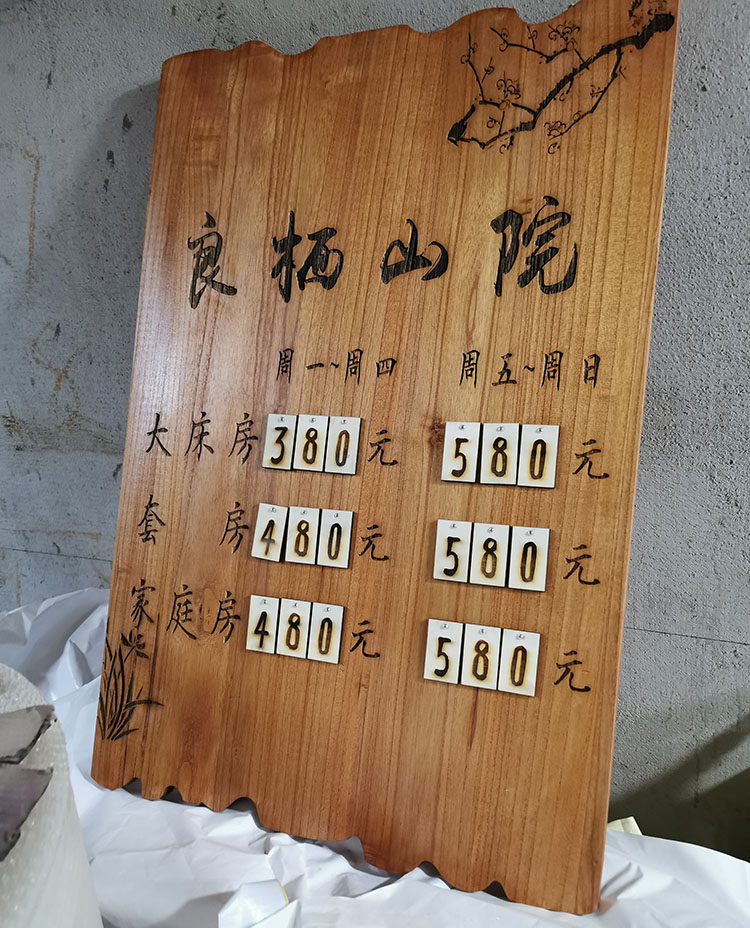 良栖山院
周一~周四 周五~周日
大床房 380元 580元
套房 480元 580元
家庭房 480元 580元